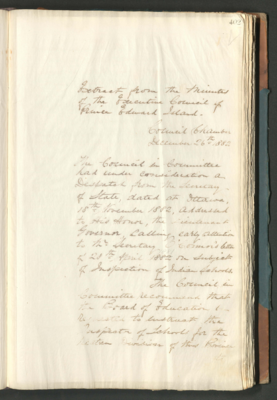 Extract from the Minutes
of the Executive Council of
Prince Edward Island.
Council Chamber
December 1882
The Council in Committee
had under consideration a
Despatch from the Secretary
of State, dated at Ottawa,
18th November 1882, addressed
to His Honor the Lieutenant
Governor calling early attention
to the Secretary of
of 28th April 1882 on subject
of Inspection of Indian Schools
The Council in
Committee recommend that
the Board of Education be
requested to instruct the
Inspector of Schools for the
division of this